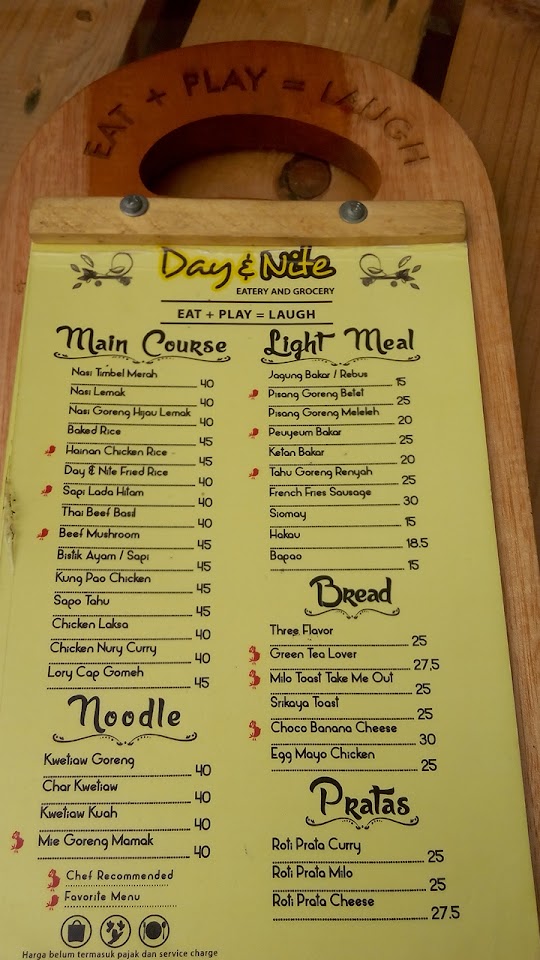 EAT + PLAY = LAUGH
Day & Nite
EATERY AND GROCERY
EAT + PLAY = LAUGH
Main Course
Nasi Timbel Merah 40
Nasi Lemak 40
Nasi Goreng Hijau Lemak 40
Baked Rice 45
Hainan Chicken Rice 45
Day & Nite Fried Rice 40
Sapi Lada Hitam 40
Thai Beef Basil 40
Beef Mushroom 45
Bistik Ayam / Sapi 45
Kung Pao Chicken 45
Sapo Tahu 45
Chicken Laksa 40
Chicken Nury Curry 40
Lory Cap Gomeh 45
Noodle
Kwetiaw Goreng 40
Char Kwetiaw 40
Kwetiaw Kuah 40
Mie Goreng Mamak 40
Chef Recommended
Favorite Menu
Harga belum termasuk pajak dan service charge
Light Meal
Jagung Bakar / Rebus 15
Pisang Goreng Belel 25
Pisang Goreng Meleleh 20
Peuyeum Bakar 25
Ketan Bakar 20
Tahu Goreng Renyah 25
French Fries Sausage 30
Siomay 15
Hakau 18.5
Bapao 15
Bread
Three Flavor 25
Green Tea Lover 27,5
Milo Toast Take Me Out 25
Srikaya Toast 25
Choco Banana Cheese 30
Egg Mayo Chicken 25
Pratas
Roti Prata Curry 25
Roti Prata Milo 25
Roti Prata Cheese 27.5